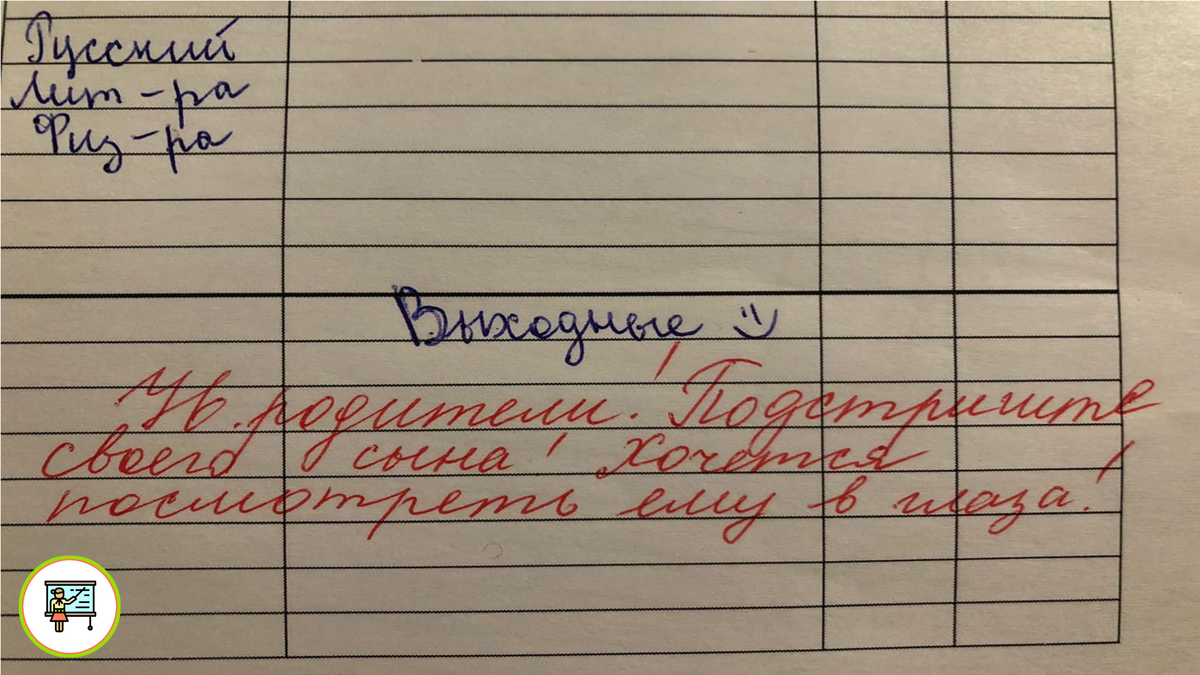 Русский
Лит-ра
Физ-ра
Выходные
Ув. родители! Подстригите
своего сына! Хочется
посмотреть ему в глаза!